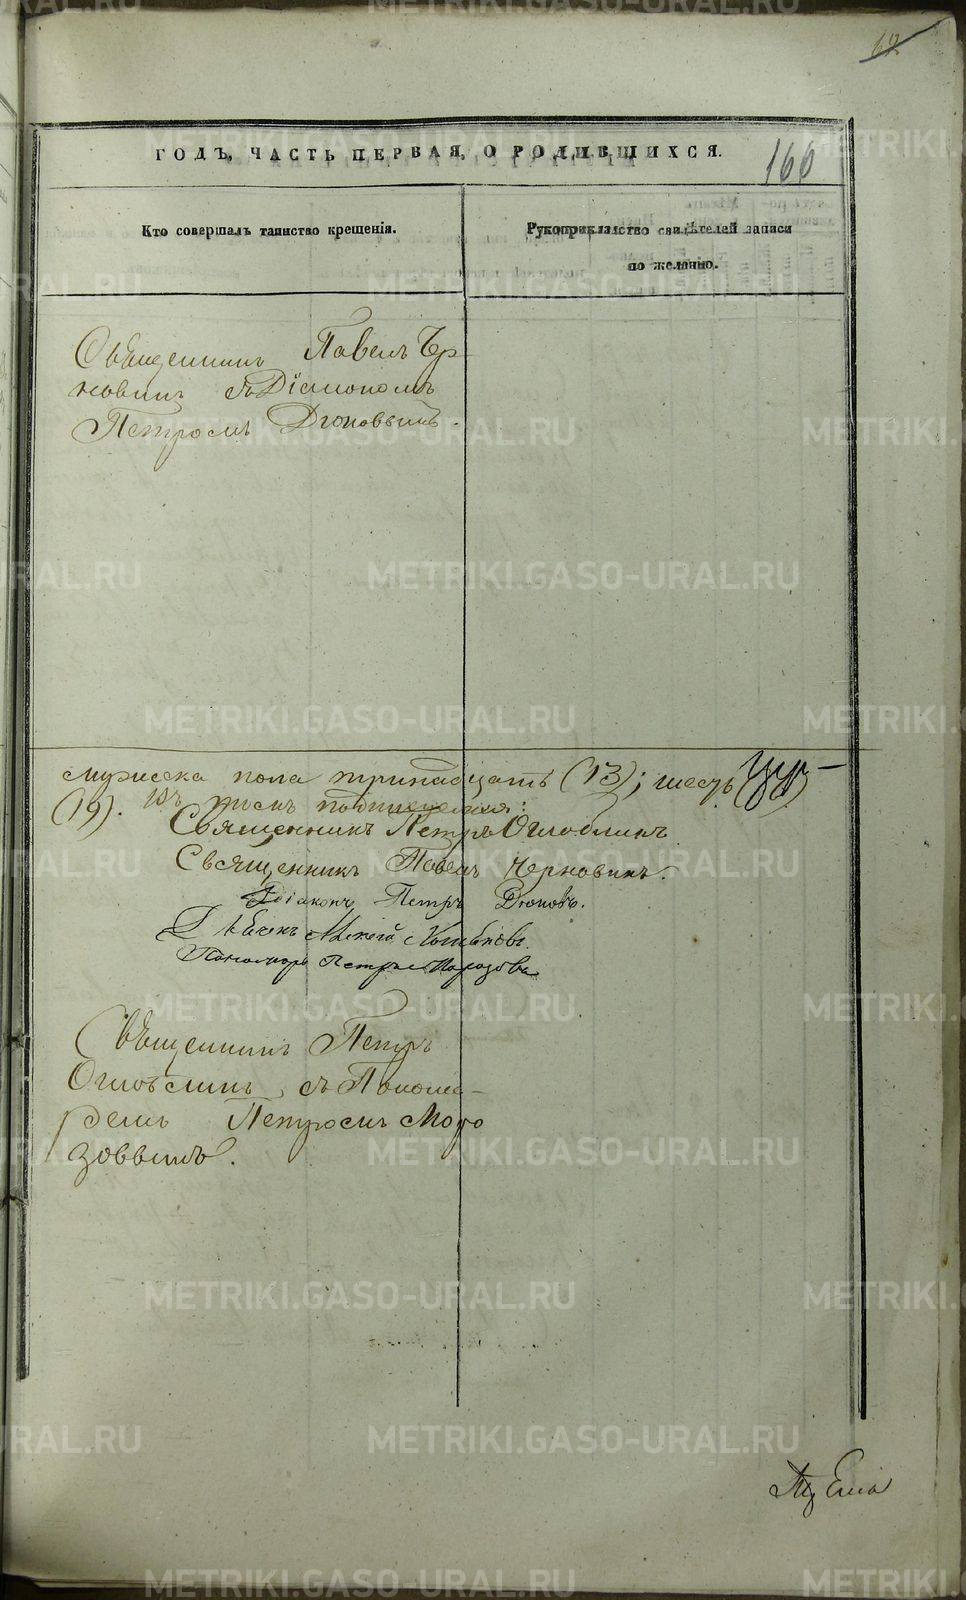 ГОДЪ, ЧАСТЬ ПЕРВАЯ, О РОДИВШИХСЯ.
166
Кто совершалъ таинство крещенія.
Рукоприкладство свидѣтелей записи
по желанію.
Священникъ Павелъ Чер
новинъ съ Діакономъ
Петромъ Дюковымъ.
мужеска пола тринадцать (13);
(19). въ томъ подписуемся:
Священникъ Петръ Оглоблинъ
Священникъ Павелъ Черновинъ.
Діаконъ Петръ Дюковъ.
Пономарь Петръ Морозовъ
Священникъ Петръ
Оглоблинъ съ Понома-
ремъ Петромъ Моро
зовымъ.
METRIKI.GASO-URAL.RU